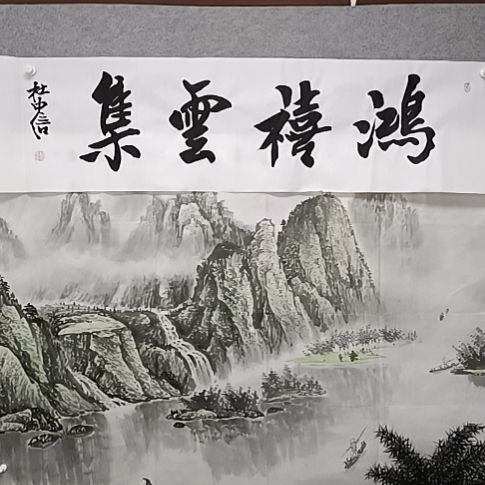 鴻禧雲集
杜中信